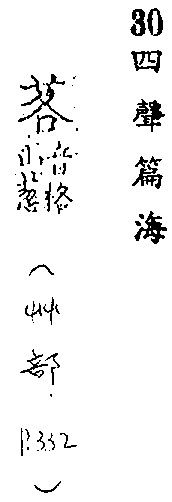 30 四聲篇海
茖
音格
(艸部. P.332)